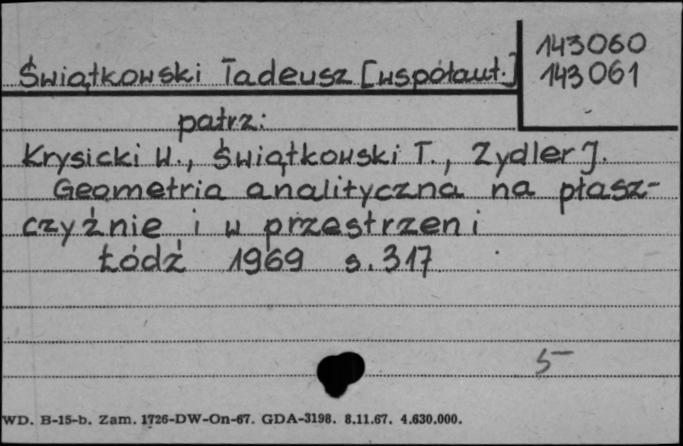 143060
Świątkowski Tadeusz [współaut.]
143061
patrz:
Krysicki W., Świątkowski T., Zydler J.
Geometria analityczna na płasz-
czyźnie i w przestrzeni
Łódź 1969 s. 317
5-
WD. B-15-b. Zam. 1726-DW-On-67. GDA-3198. 8.11.67. 4.630.000.